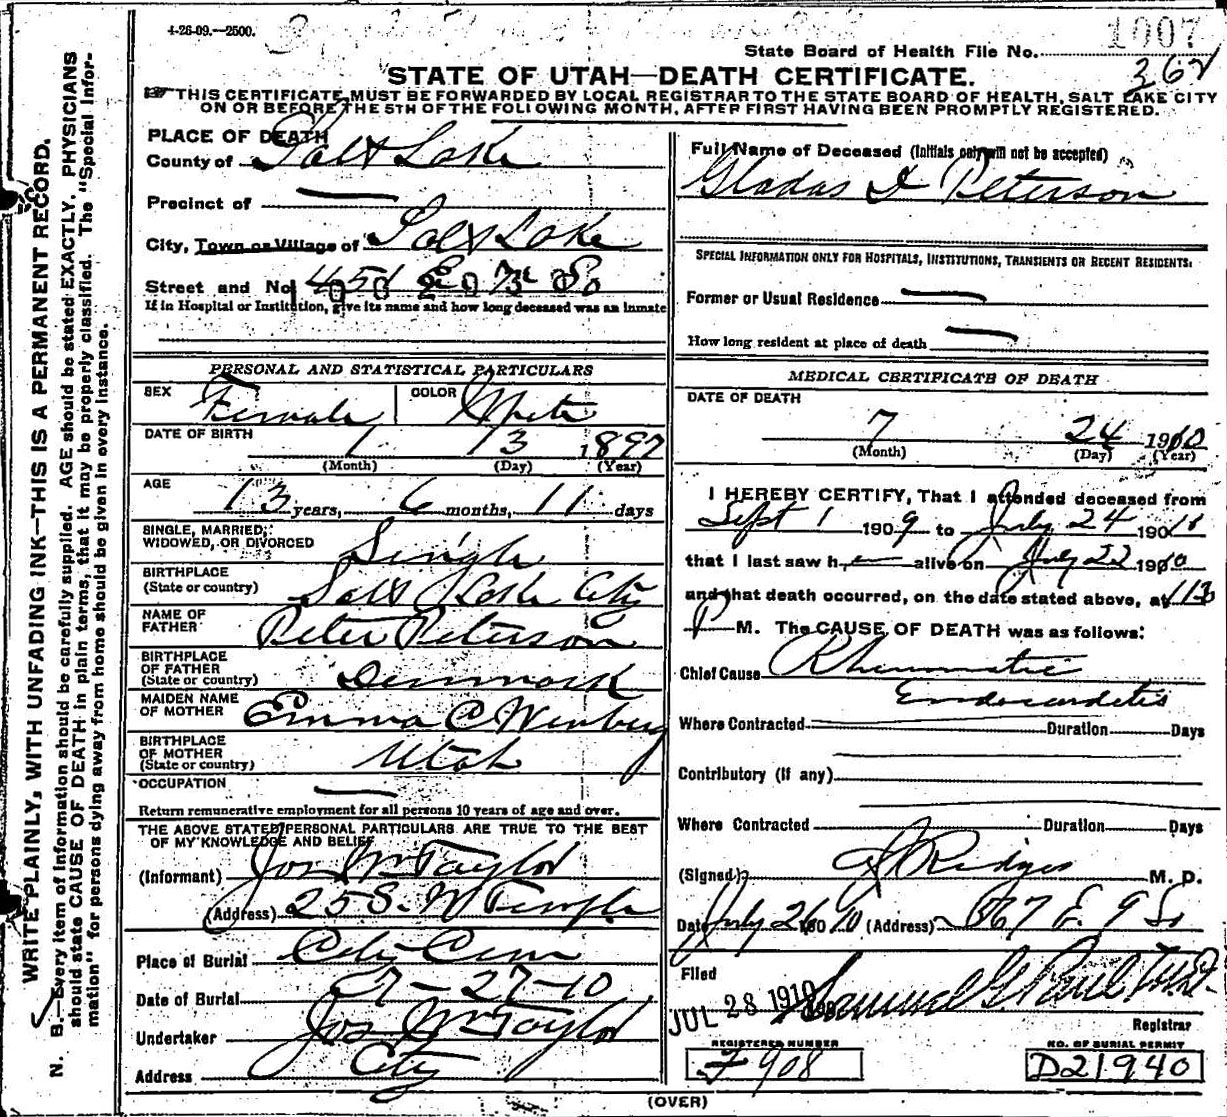 4-26-09.—2500.
State Board of Health File No. 1007
362
STATE OF UTAH—DEATH CERTIFICATE.
THIS CERTIFICATE MUST BE FORWARDED BY LOCAL REGISTRAR TO THE STATE BOARD OF HEALTH, SALT LAKE CITY
ON OR BEFORE THE 5TH OF THE FOLLOWING MONTH, AFTER FIRST HAVING BEEN PROMPTLY REGISTERED.
WRITE PLAINLY, WITH UNFADING INK—THIS IS A PERMANENT RECORD.
N. B.—Every item of information should be carefully supplied. AGE should be stated EXACTLY. PHYSICIANS
should state CAUSE OF DEATH in plain terms, that it may be properly classified. The "Special Infor-
mation" for persons dying away from home should be given in every instance.
PLACE OF DEATH
County of Salt Lake
Precinct of —
City, Town or Village of Salt Lake
Street and No. 451 E 7th So
If in Hospital or Institution, give its name and how long deceased was an inmate
PERSONAL AND STATISTICAL PARTICULARS
SEX Female COLOR White
DATE OF BIRTH 1 13 1897
(Month) (Day) (Year)
AGE 13 years, 6 months, 11 days
SINGLE, MARRIED,
WIDOWED, OR DIVORCED Single
BIRTHPLACE
(State or country) Salt Lake City
NAME OF
FATHER Peter Peterson
BIRTHPLACE
OF FATHER
(State or country) Denmark
MAIDEN NAME
OF MOTHER Emma C
BIRTHPLACE
OF MOTHER
(State or country) Utah
OCCUPATION —
Return remunerative employment for all persons 10 years of age and over.
THE ABOVE STATED PERSONAL PARTICULARS ARE TRUE TO THE BEST
OF MY KNOWLEDGE AND BELIEF
(Informant) Jos Wm Taylor
(Address) 25 S. W Temple
Place of Burial City Cem
Date of Burial 7-27-10
Undertaker Jos Wm Taylor
Address City
Full Name of Deceased (Initials only will not be accepted)
Gladas I Peterson
SPECIAL INFORMATION ONLY FOR HOSPITALS, INSTITUTIONS, TRANSIENTS OR RECENT RESIDENTS:
Former or Usual Residence —
How long resident at place of death —
MEDICAL CERTIFICATE OF DEATH
DATE OF DEATH
7 24 1910
(Month) (Day) (Year)
I HEREBY CERTIFY, That I attended deceased from
Sept 1 1909 to July 24 1910
that I last saw h alive on July 22 1910
and that death occurred, on the date stated above, at
P M. The CAUSE OF DEATH was as follows:
Chief Cause Rheumatic
Endocardetis
Where Contracted Duration Days
Contributory (if any)
Where Contracted Duration Days
(Signed) Ridges M. D.
Date July 26 1910 (Address) 367 E. 9 So
Filed
JUL 28 1910 Samuel G Paul
Registrar
REGISTERED NUMBER
F 908
NO. OF BURIAL PERMIT
D21940
(OVER)